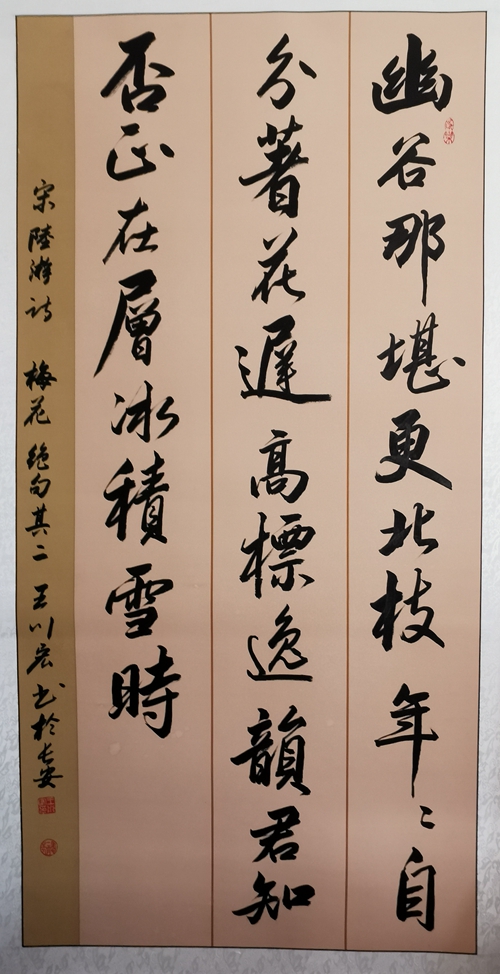 幽谷那堪更北枝年〻自
分著花遲高標逸韻君知
否正在層冰積雪時
宋陸游詩 梅花絕句其二 王川宏书於长安